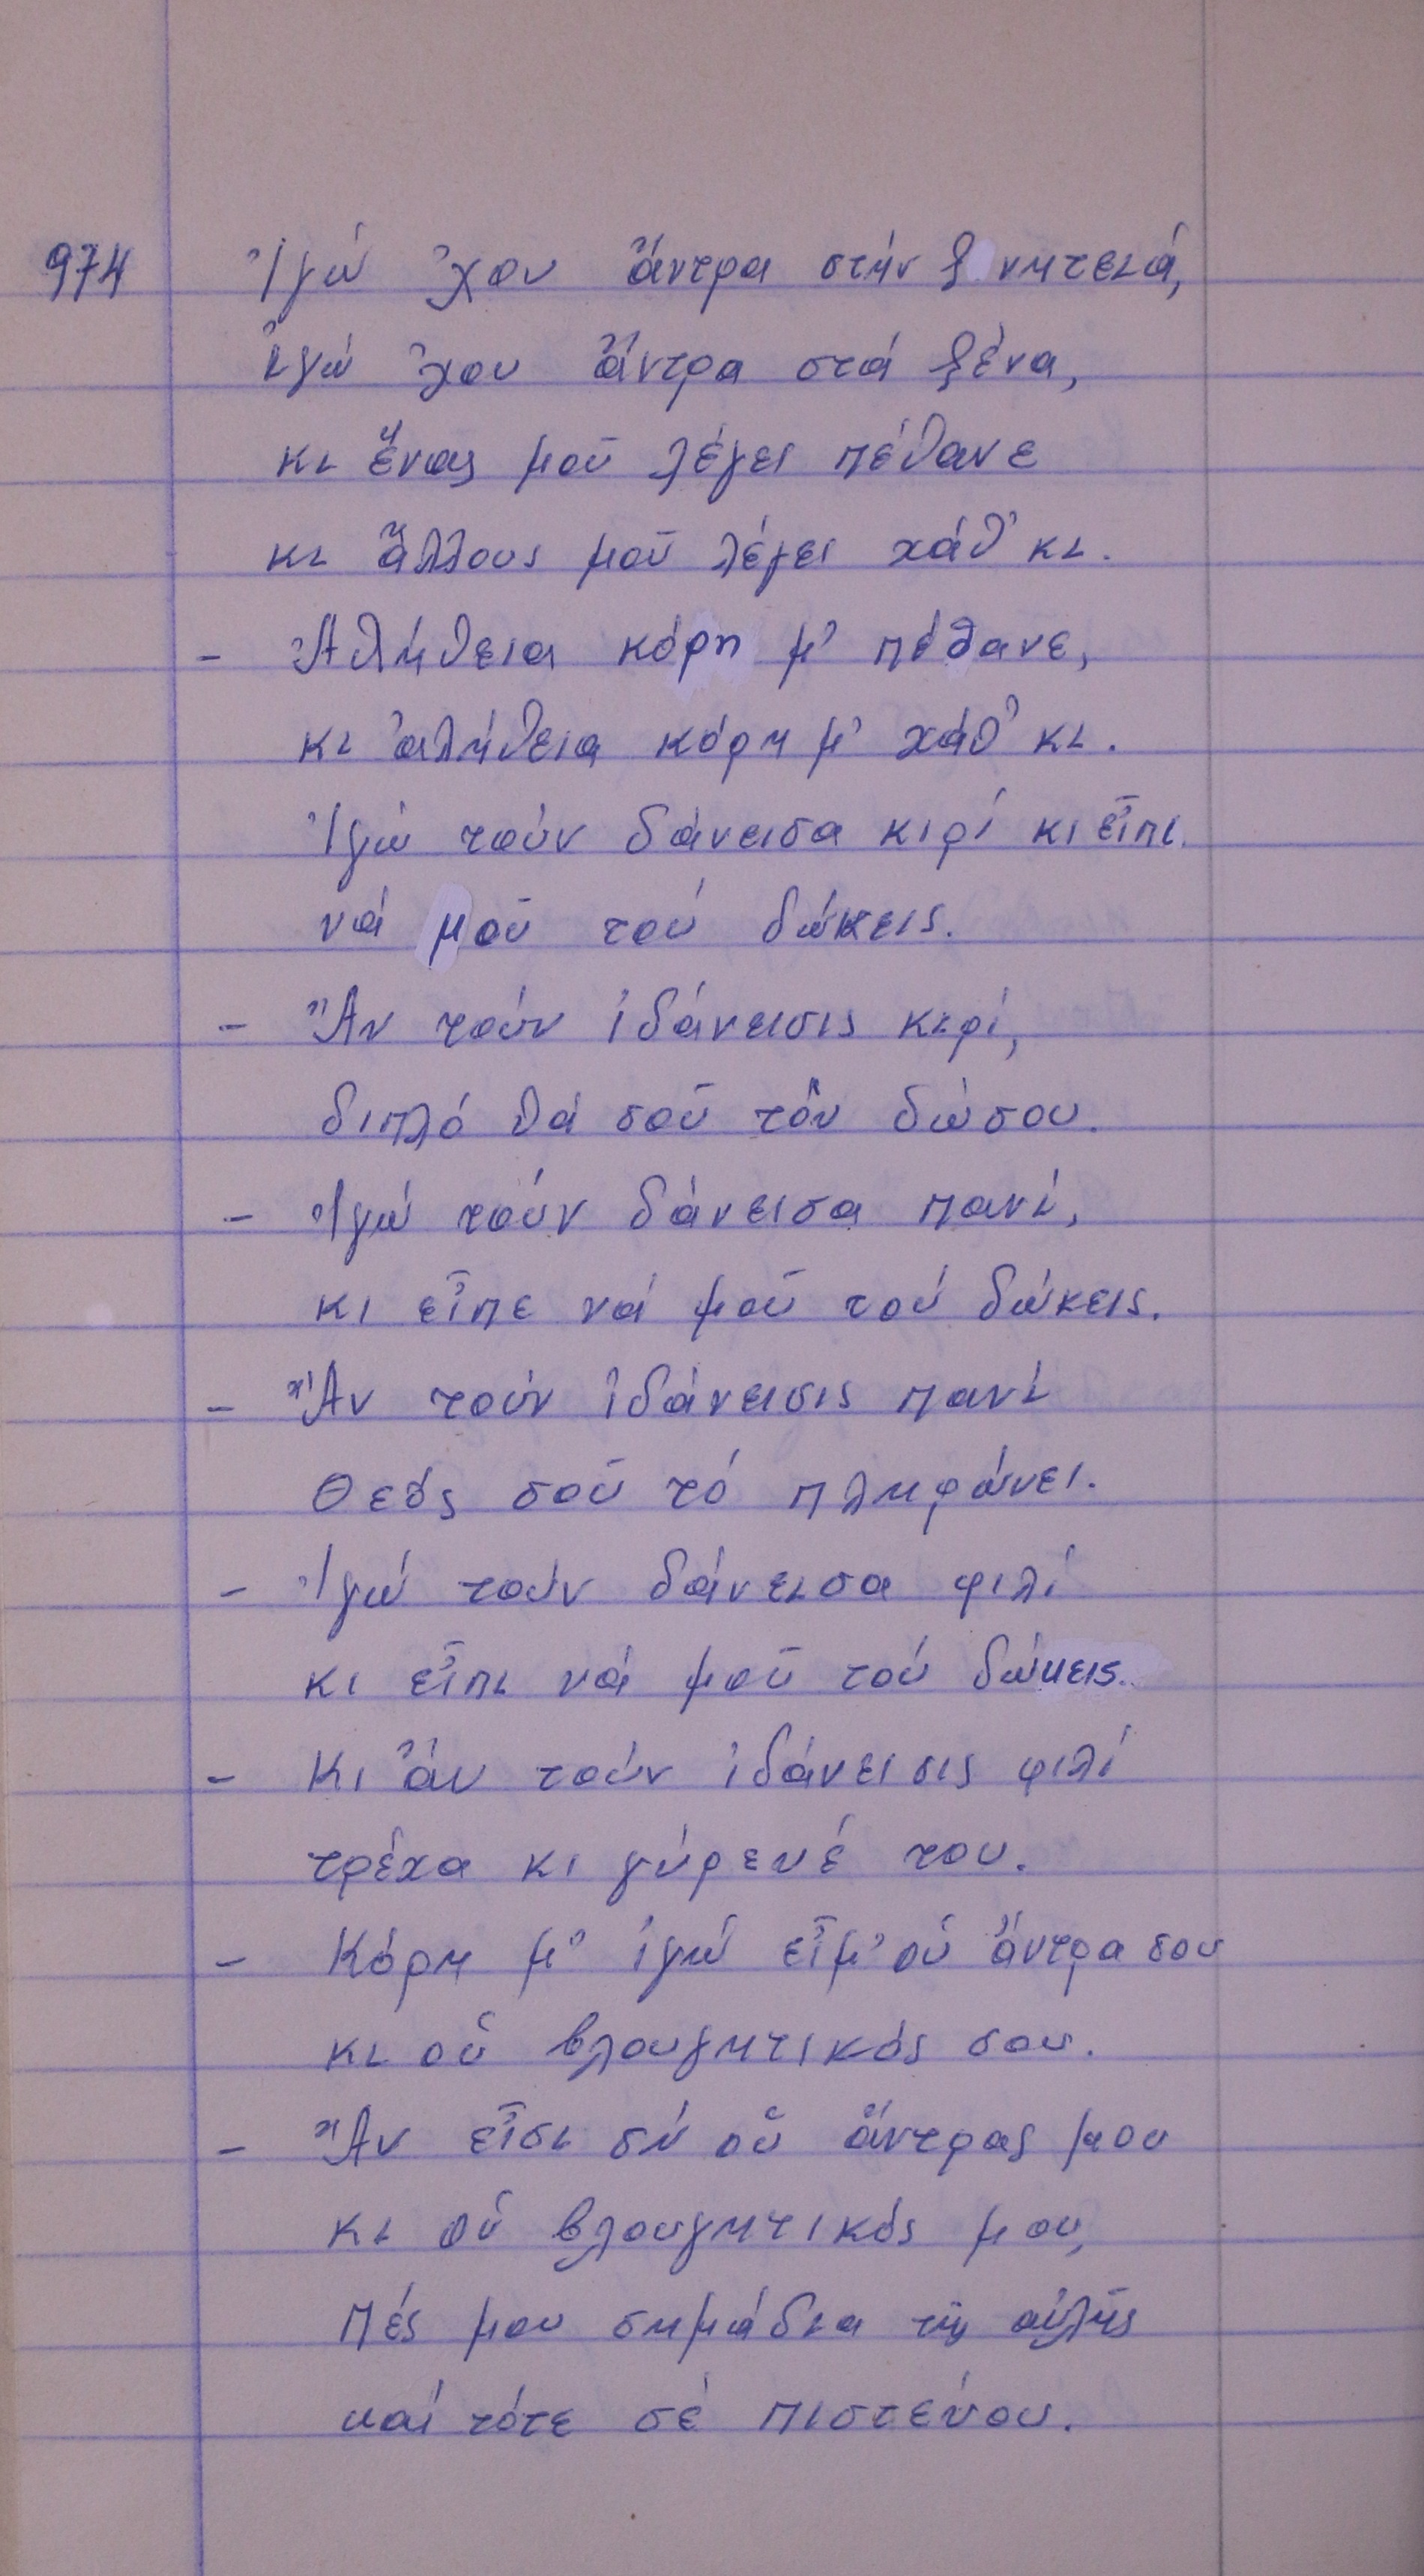 974 Ἰγώ ᾿χου ἄντρα στήν ξ νητειά,
ἰγώ ᾿χου ἄντρα στά ξένα,
κι ἕνας μοῦ λέγει πέθανε
κι ἄλλους μοῦ λέγει χάθ᾿κι.
- Ἀλήθεια κόρη μ᾿ πέθανε,
κι ἀλήθεια κόρη μ᾿ χάθ᾿κι.
Ἰγώ τούν δάνεισα κιρί κι εἶπι
νά μοῦ τού δώκεις.
- Ἄν τούν ἰδάνεισις κιρί,
διπλό θά σοῦ τόν δώσου.
- Ἰγώ τούν δάνεισα πανί,
κι εἶπε νά μοῦ τού δώκεις.
- Ἄν τούν ἰδάνεισις πανί
Θεός σοῦ τό πληρώνει.
- Ἰγώ τούν δάνεισα φιλί
κι εἶπι νά μοῦ τού δώκεις.
- Κι ἄν τούν ἰδάνεισις φιλί
τρέχα κι γύρευέ του.
- Κόρη μ᾿ ἰγώ εἶμ᾿ οὑ ἄντρα σου
κι οὑ βλουγητικός σου.
- Ἄν εἶσι σύ οὑ ἄντρας μου
κι οὑ βλουγητικός μου,
Πές μου σημάδια τῆς αὐλῆς
καί τότε σέ πιστεύου.